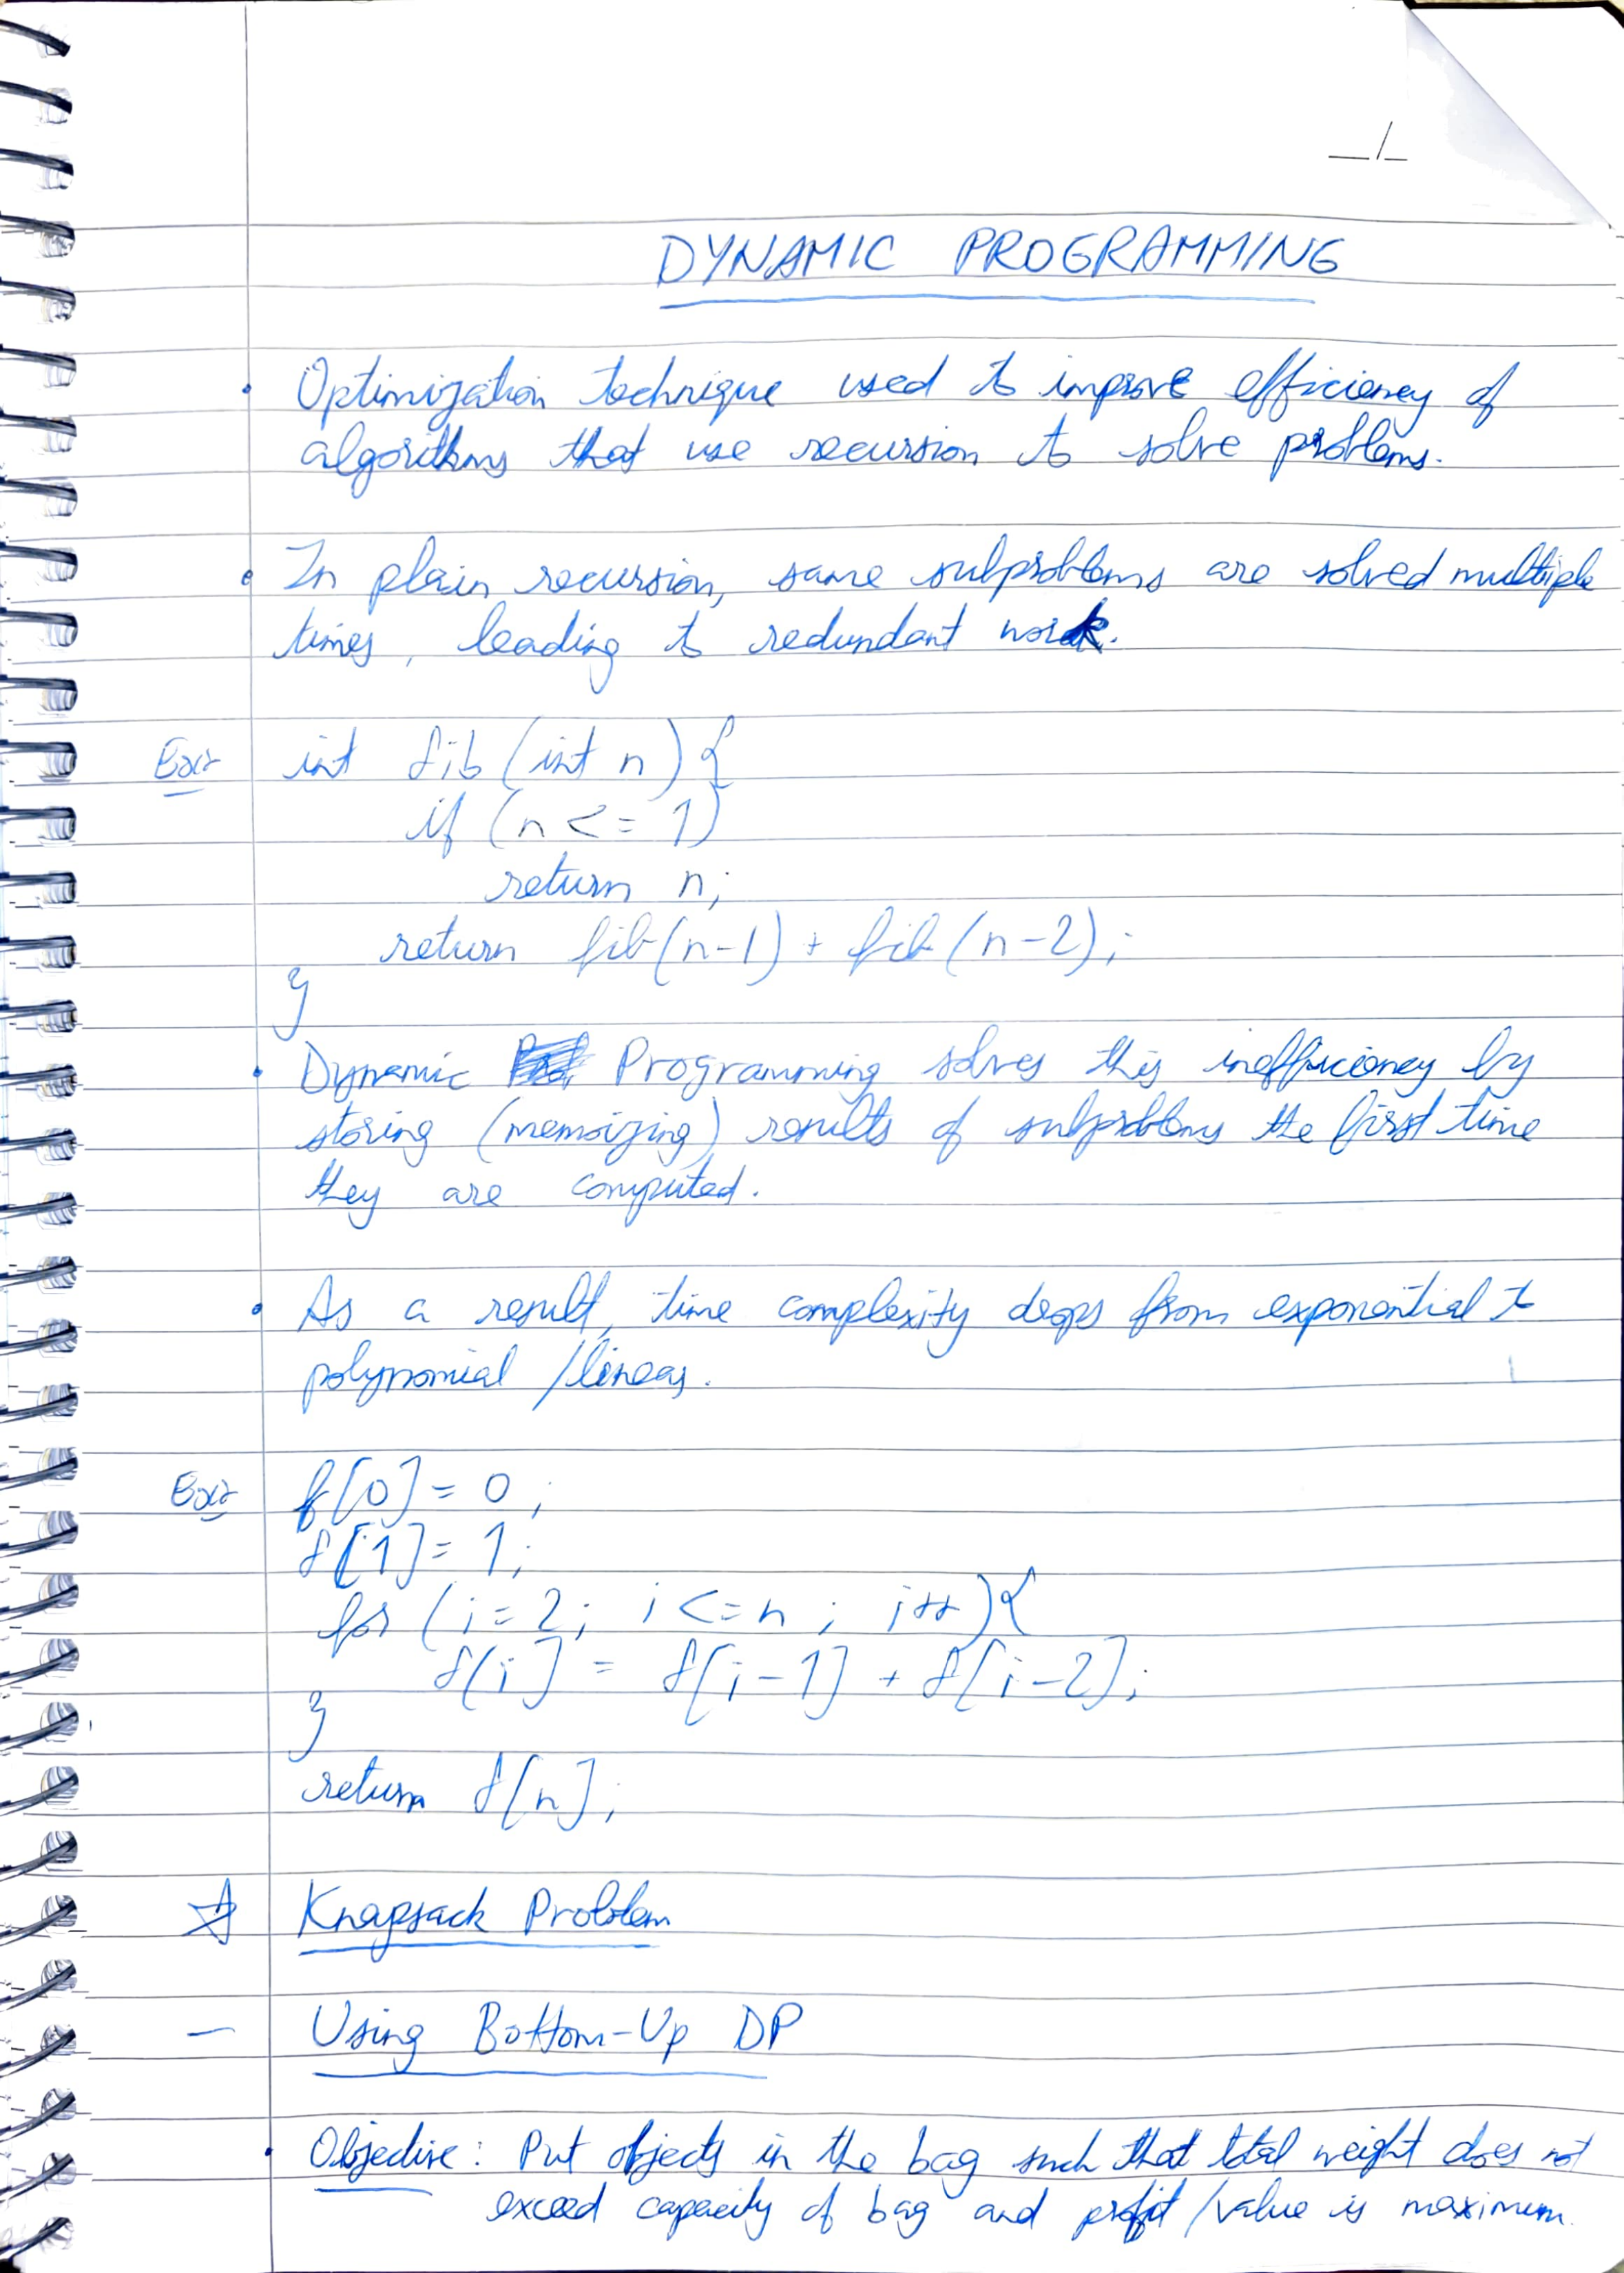 _/_
DYNAMIC PROGRAMMING
• Optimization technique used to improve efficiency of
algorithms that use recursion to solve problems.
• In plain recursion, same subproblems are solved multiple
times, leading to redundant work.
Ex:- int fib (int n) {
if (n <= 1)
return n;
return fib(n-1) + fib(n-2);
}
• Dynamic Programming solves this inefficiency by
storing (memoizing) results of subproblems the first time
they are computed.
• As a result, time complexity drops from exponential to
polynomial /linear.
Ex:- f[0] = 0;
f[1] = 1;
for (i = 2; i <= n; i++) {
f[i] = f[i-1] + f[i-2];
}
return f[n];
☆ Knapsack Problem
— Using Bottom-Up DP
• Objective: Put objects in the bag such that total weight does not
exceed capacity of bag and profit /value is maximum.